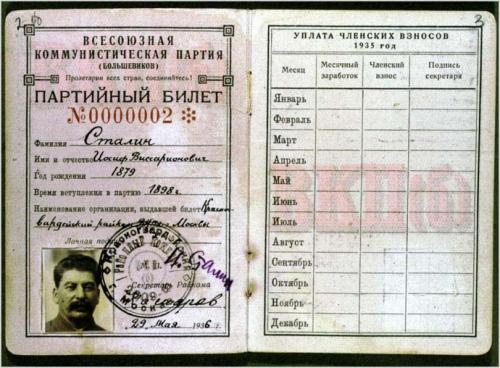 ВСЕСОЮЗНАЯ
КОММУНИСТИЧЕСКАЯ ПАРТИЯ
(БОЛЬШЕВИКОВ)
Пролетарии всех стран, соединяйтесь!
ПАРТИЙНЫЙ БИЛЕТ
№0000002
Фамилия Сталин
Имя и отчество Иосиф Виссарионович
Год рождения 1879
Время вступления в партию 1898г.
Наименование организации, выдавшей билет Красно-
гвардейский райком Москвы
Личная подпись И. Сталин
Секретарь Райкома
29 Мая 1936 г.
3
УПЛАТА ЧЛЕНСКИХ ВЗНОСОВ
1935 год
Месяц Месячный заработок Членский взнос Подпись секретаря
Январь
Февраль
Март
Апрель
Май
Июнь
Июль
Август
Сентябрь
Октябрь
Ноябрь
Декабрь
ВКП(б)